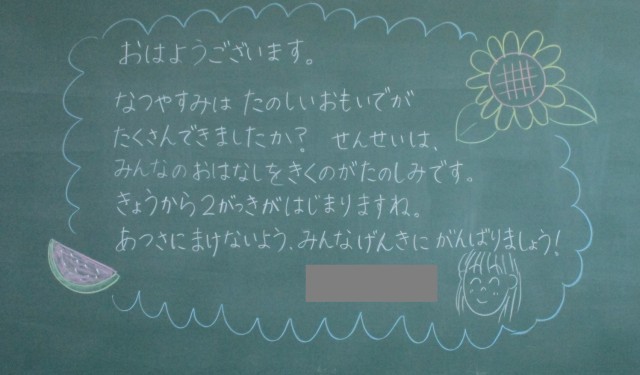 おはようございます。
なつやすみは たのしいおもいでが
たくさんできましたか? せんせいは、
みんなのおはなしをきくのがたのしみです。
きょうから2がっきがはじまりますね。
あつさにまけないよう、みんなげんきに がんばりましょう!